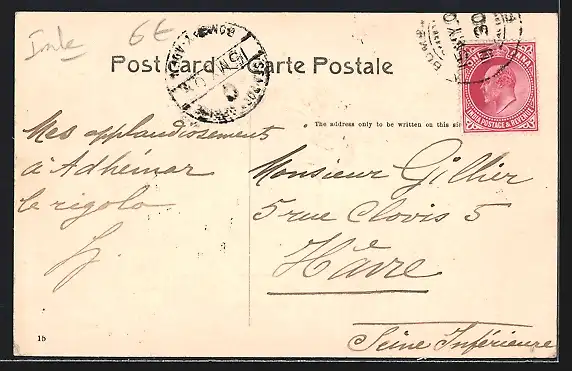 Inde 6€
Post Card Carte Postale
BOMBAY-ADEN
SEA POST OFFICE
ONE ANNA
INDIA POSTAGE & REVENUE
The address only to be written on this side
Mes applaudissements
à Adhémar
le rigolo
Monsieur Gillier
5 rue Clovis 5
Hâvre
Seine Inférieure
15